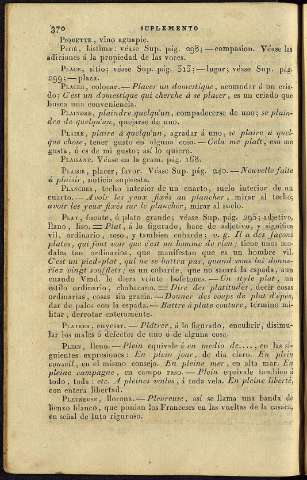 370 SUPLEMENTO
PIQUETTE, vino aguapie.
PITIÉ, lástima: véase Sup. pág. 298; — compasion. Véase las
adiciones á la propiedad de las voces.
PLACE, sitio; véase Sup. pág. 313; — lugar; véase Sup. pág.
299; — plaza.
PLACER, colocar. — Placer un domestique, acomodar á un cria-
do; C'est un domestique qui cherche à se placer, es un criado que
busca una conveniencia.
PLAINDRE, plaindre quelqu'un, compadecerse de uno; se plain-
dre de quelqu'un, quejarse de uno.
PLAIRE, plaire à quelqu'un, agradar á uno, se plaire à quel-
que chose, tener gusto en alguna cosa. — Cela me plaît, eso me
gusta, ó es de mi gusto; así lo quiero.
PLAISANT. Véase en la gram. pág. 168.
PLAISIR, placer, favor. Véase Sup. pág. 240. — Nouvelle faite
à plaisir, noticia supuesta.
PLANCHER, techo interior de un cuarto, suelo interior de un
cuarto. — Avoir les yeux fixés au plancher, mirar al techo;
avoir les yeux fixés sur le plancher, mirar al suelo.
PLAT, fuente, ó plato grande; véase Sup. pág. 295; adjetivo,
llano, liso. — Plat, á lo figurado, hace de adjetivo, y significa
vil, ordinario, soso, y tambien cobarde; v. g. Il a des façons
plates, qui font voir que c'est un homme de rien; tiene unos mo-
dales tan ordinarios, que manifiestan que es un hombre vil.
C'est un pied-plat, qui ne se battra pas, quand vous lui donne-
riez vingt soufflets; es un cobarde, que no sacará la espada, aun
cuando Vmd. le diera veinte bofetones. — Un style plat, un
estilo ordinario, chabacano. — Dire des platitudes, decir cosas
ordinarias, cosas sin gracia. — Donner des coups de plat d'épée,
dar de palos con la espada. — Battre à plate couture, término mi-
litar, derrotar enteramente.
PLATRER, enyesar. — Plâtrer, á lo figurado, encubrir, disimu-
lar los males ó defectos de uno ó de alguna cosa.
PLEIN, lleno. — Plein equivale á en medio de...., en las si-
guientes expresiones: En plein jour, de dia claro. En plein
conseil, en el mismo consejo. En pleine mer, en alta mar. En
pleine campagne, en campo raso. — Plein equivale tambien á
todo, toda: etc. A pleines voiles, á toda vela. En pleine liberté,
con entera libertad.
PLEUREUSE, llorona. — Pleureuse, así se llama una banda de
lienzo blanco, que ponian los Franceses en las vueltas de la casaca,
en señal de luto riguroso.